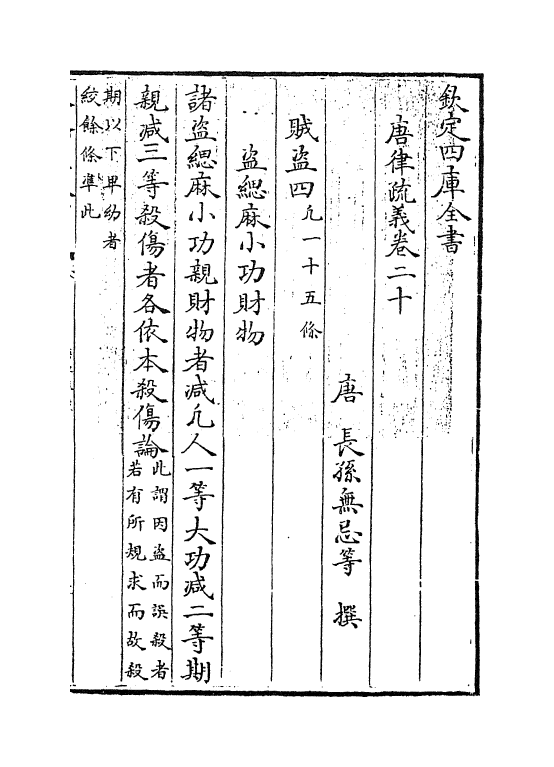 欽定四庫全書
唐律疏義卷二十
唐 長孫無忌等 撰
賊盜四凡一十五條
盜緦麻小功財物
諸盜緦麻小功親財物者減凡人一等大功減二等期
親減三等殺傷者各依本殺傷論此謂因盜而誤殺者
若有所規求而故殺
期以下卑幼者
絞餘條準此